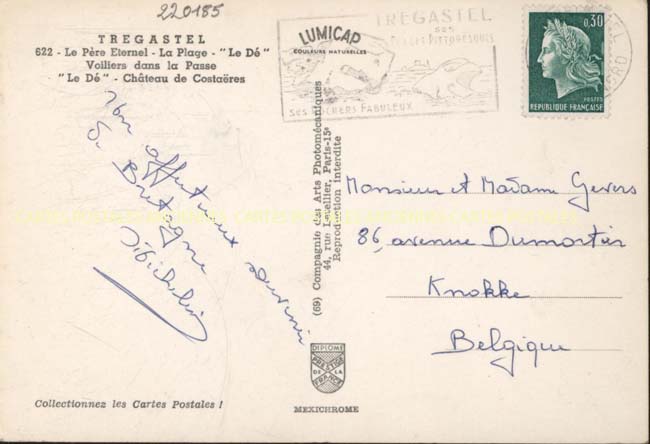 220185
TREGASTEL
622 - Le Père Eternel - La Plage - "Le Dé"
Voiliers dans la Passe
"Le Dé" - Château de Costaëres
LUMICAP
COULEURS NATURELLES
TREGASTEL
SES
PITTORESQUES
SES ROCHERS FABULEUX
0,30
POSTES
REPUBLIQUE FRANÇAISE
affectueux souvenir
de Bretagne
(69) Compagnie des Arts Photomécaniques
44, rue Letellier, Paris-15e
Reproduction interdite
Monsieur et Madame Gevers
86, avenue Dumortier
Knokke
Belgique
DIPLOME
PRESTIGE
DE LA
FRANCE
MEXICHROME
Collectionnez les Cartes Postales !
CARTES POSTALES